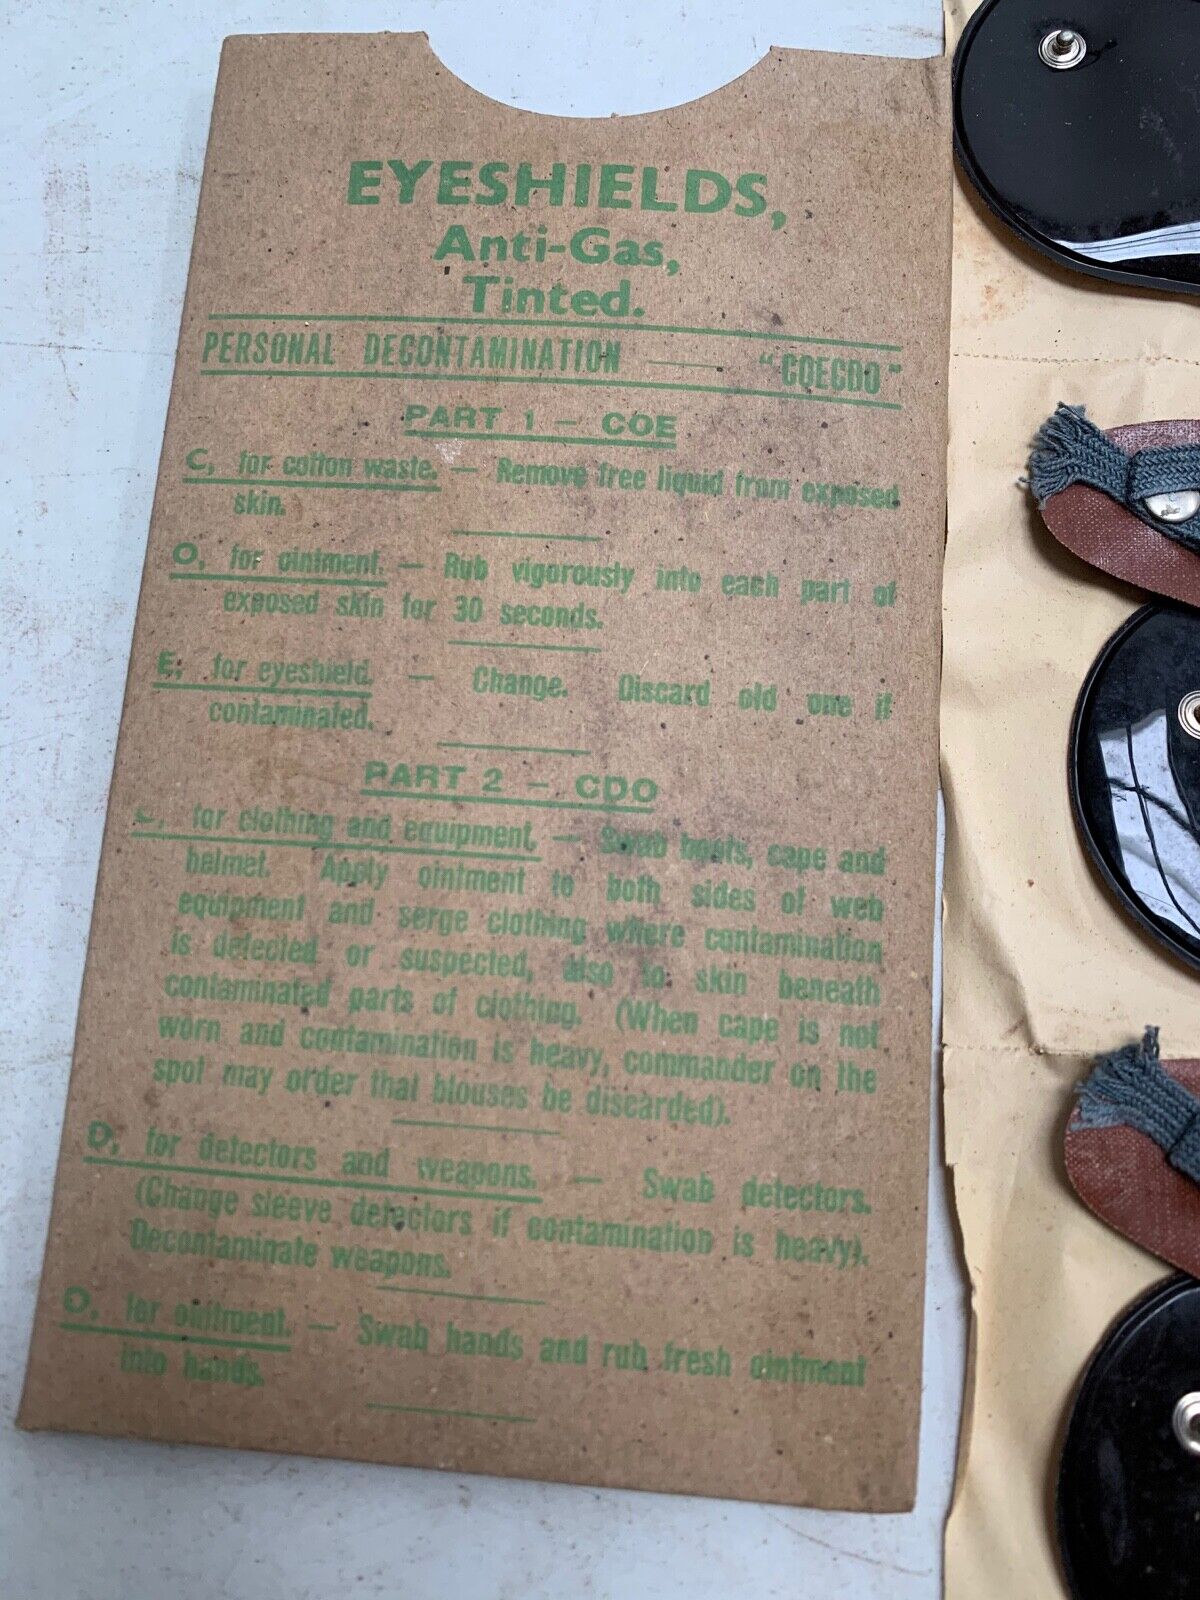 EYESHIELDS,
Anti-Gas,
Tinted.
PERSONAL DECONTAMINATION — "COECDO"
PART 1 — COE
C, for cotton waste. — Remove free liquid from exposed
skin.
O, for ointment. — Rub vigorously into each part of
exposed skin for 30 seconds.
E, for eyeshield. — Change. Discard old one if
contaminated.
PART 2 — CDO
C, for clothing and equipment, — Swab boots, cape and
helmet. Apply ointment to both sides of web
equipment and serge clothing where contamination
is detected or suspected, also to skin beneath
contaminated parts of clothing. (When cape is not
worn and contamination is heavy, commander on the
spot may order that blouses be discarded).
D, for detectors and weapons. — Swab detectors.
(Change sleeve detectors if contamination is heavy).
Decontaminate weapons.
O, for ointment. — Swab hands and rub fresh ointment
into hands.